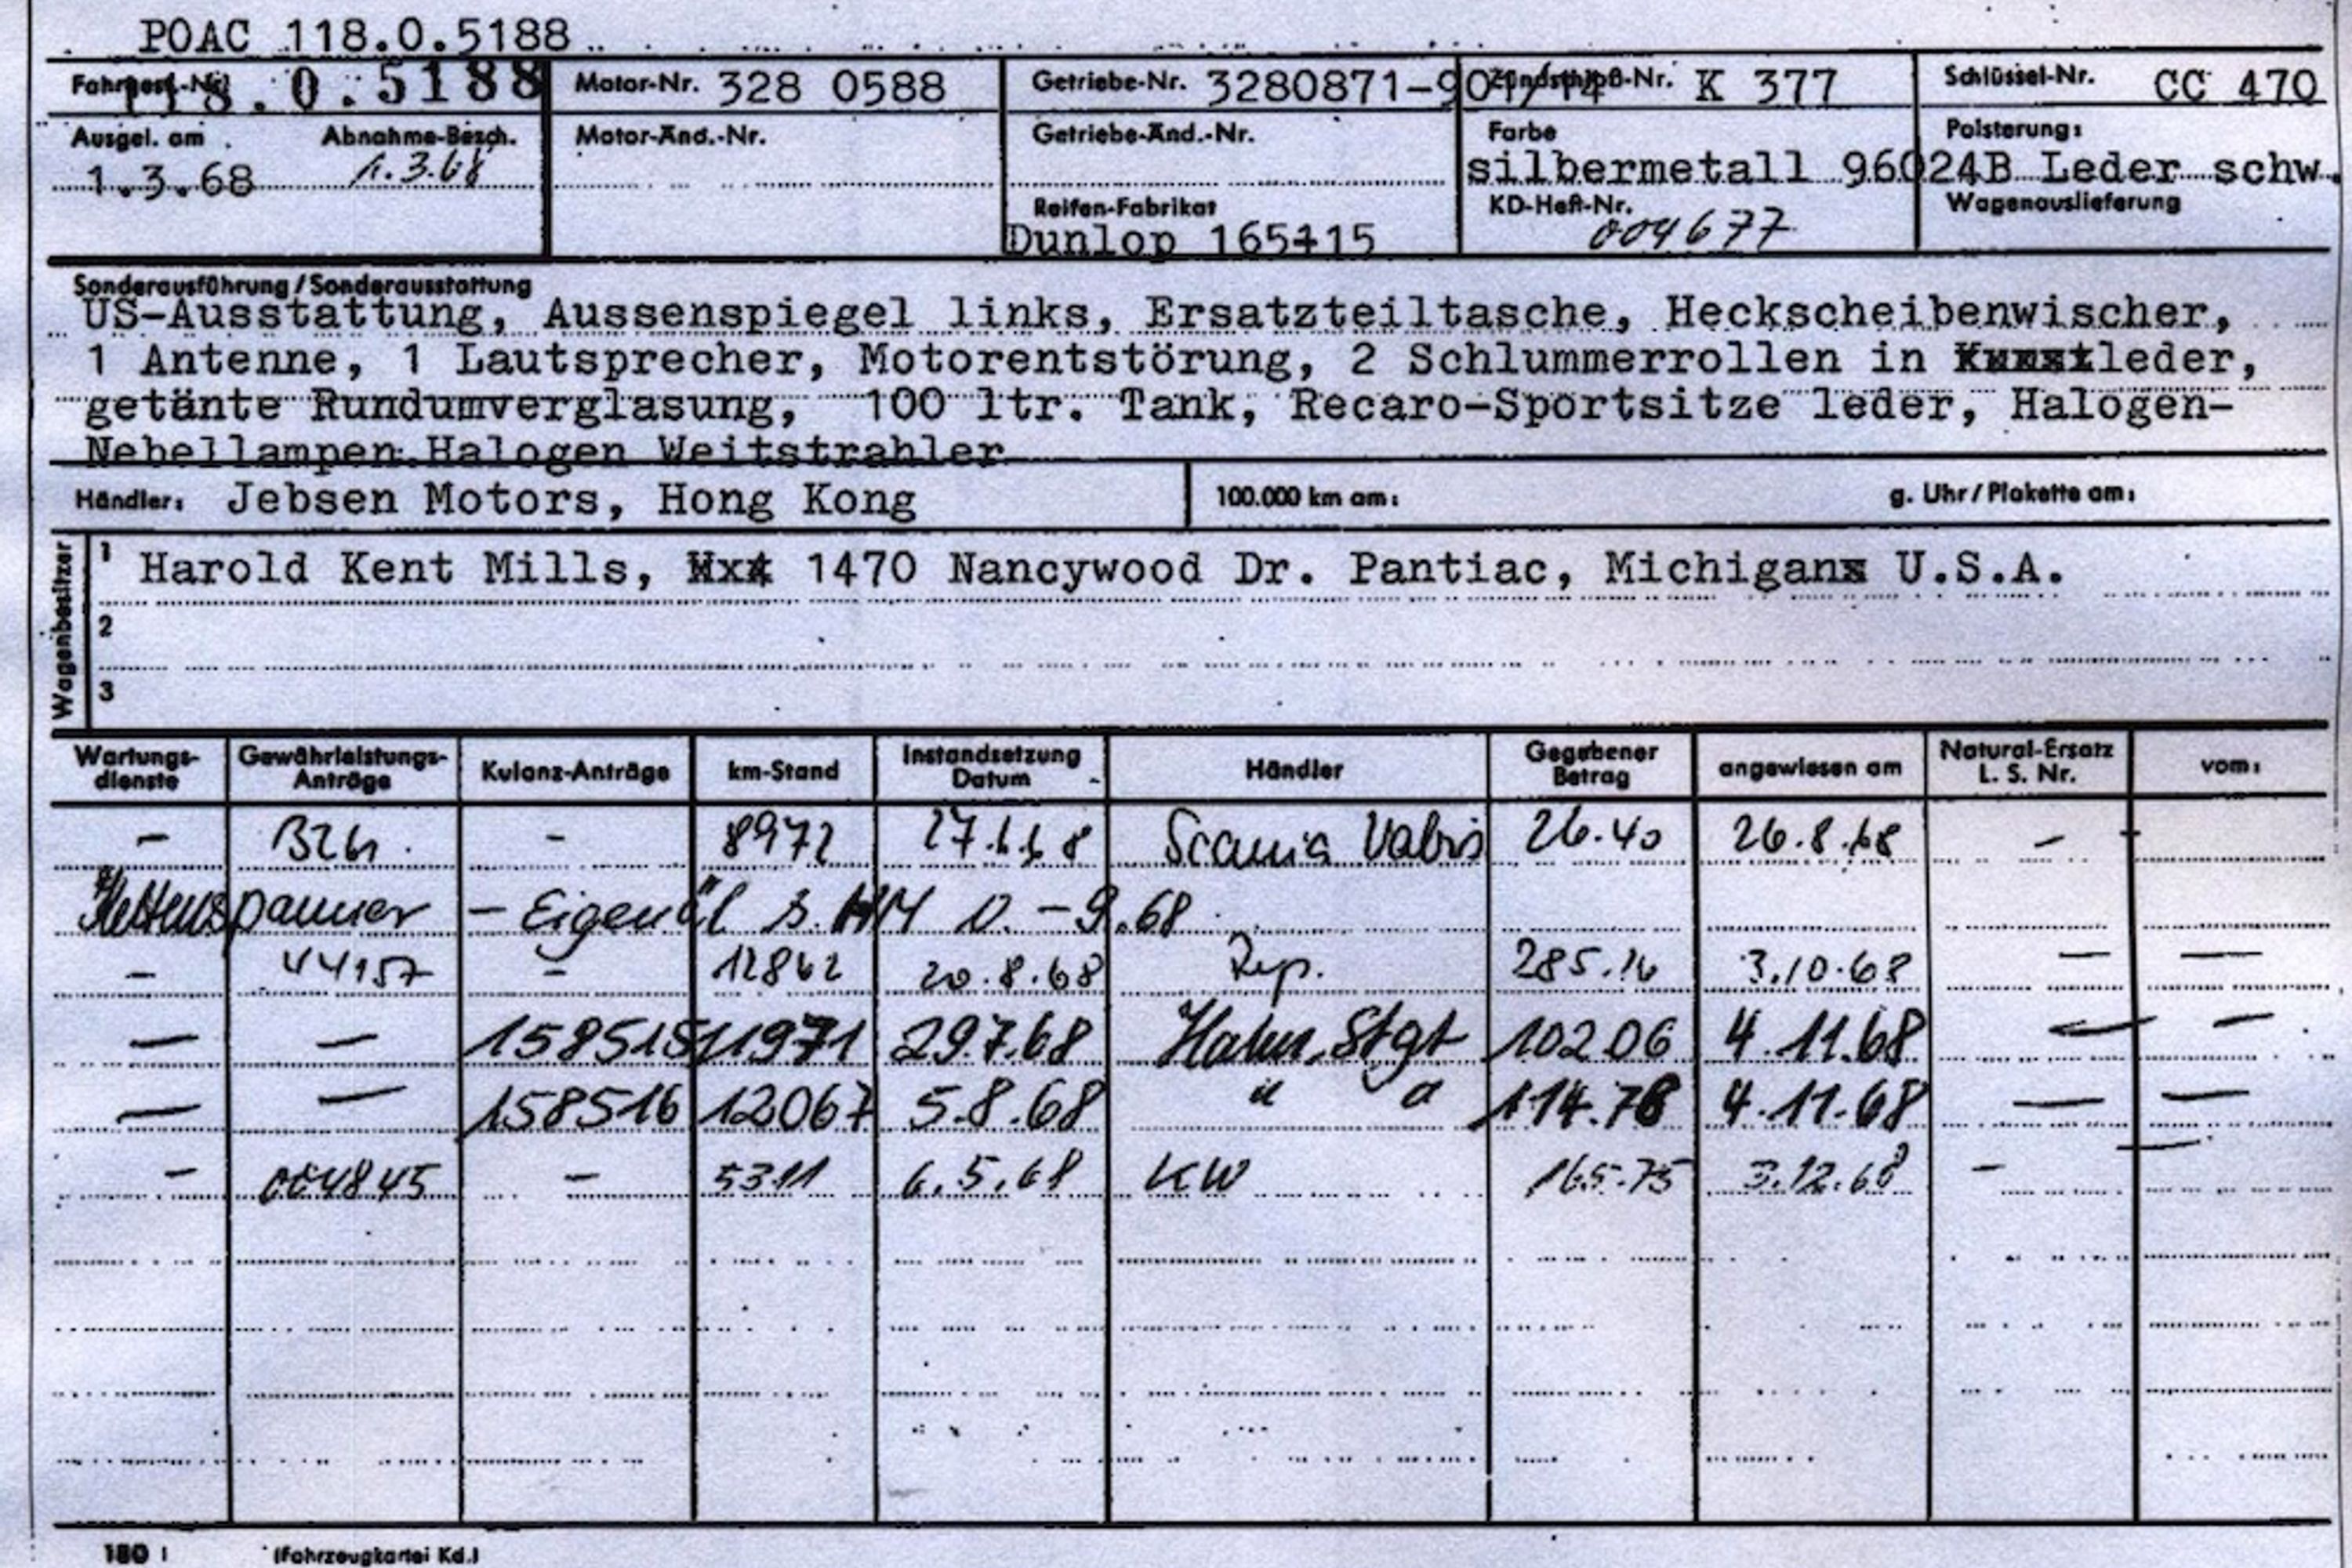 POAC 118.0.5188
Fahrgest.-Nr. 118.0.5188 Motor-Nr. 328 0588 Getriebe-Nr. 3280871-901/14 Zündschloß-Nr. K 377 Schlüssel-Nr. CC 470
Ausgel. am Abnahme-Besch. Motor-Änd.-Nr. Getriebe-Änd.-Nr. Farbe Polsterung:
1.3.68 1.3.68 silbermetall 96024B Leder schw.
Reifen-Fabrikat KD-Heft-Nr. Wagenauslieferung
Dunlop 165+15 004677
Sonderausführung/Sonderausstattung
US-Ausstattung, Aussenspiegel links, Ersatzteiltasche, Heckscheibenwischer,
1 Antenne, 1 Lautsprecher, Motorentstörung, 2 Schlummerrollen in leder,
getänte Rundumverglasung, 100 ltr. Tank, Recaro-Sportsitze leder, Halogen-
Nebellampen Halogen Weitstrahler
Händler: Jebsen Motors, Hong Kong 100.000 km am: g. Uhr/Plakette am:
Wagenbesitzer
1 Harold Kent Mills, 1470 Nancywood Dr. Pantiac, Michigan U.S.A.
2
3
Wartungs-dienste Gewährleistungs-Anträge Kulanz-Anträge km-Stand Instandsetzung Datum - Händler Gegebener Betrag angewiesen am Natural-Ersatz L. S. Nr. vom:
- - 8972 27.6.68 Scania Vabis 26.40 26.8.68 -
Kettenspanner - 9.68
- 44157 - 12862 20.8.68 Rep. 285.16 3.10.68 - -
- - 158515 11971 29.7.68 Hahn, Stgt 102.06 4.11.68 - -
- - 158516 12067 5.8.68 " " 114.78 4.11.68 - -
- 004845 - 5311 6.5.68 KW 165.75 3.12.68 - -
180 (Fahrzeugkartei Kd.)